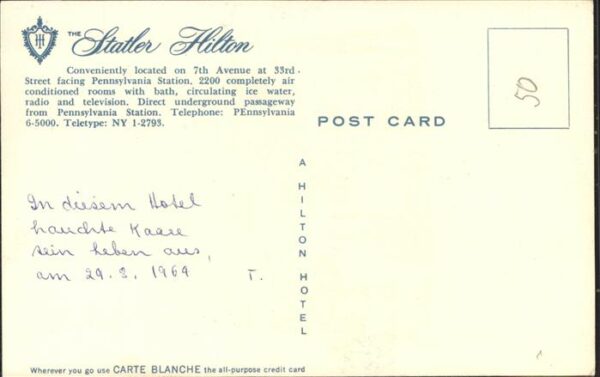 THE Statler Hilton
Conveniently located on 7th Avenue at 33rd
Street facing Pennsylvania Station. 2200 completely air
conditioned rooms with bath, circulating ice water,
radio and television. Direct underground passageway
from Pennsylvania Station. Telephone: PEnnsylvania
6-5000. Teletype: NY 1-2793.
POST CARD
50
A HILTON HOTEL
In diesem Hotel
hauchte Kaare
sein Leben aus,
am 29. 3. 1969 T.
Wherever you go use CARTE BLANCHE the all-purpose credit card